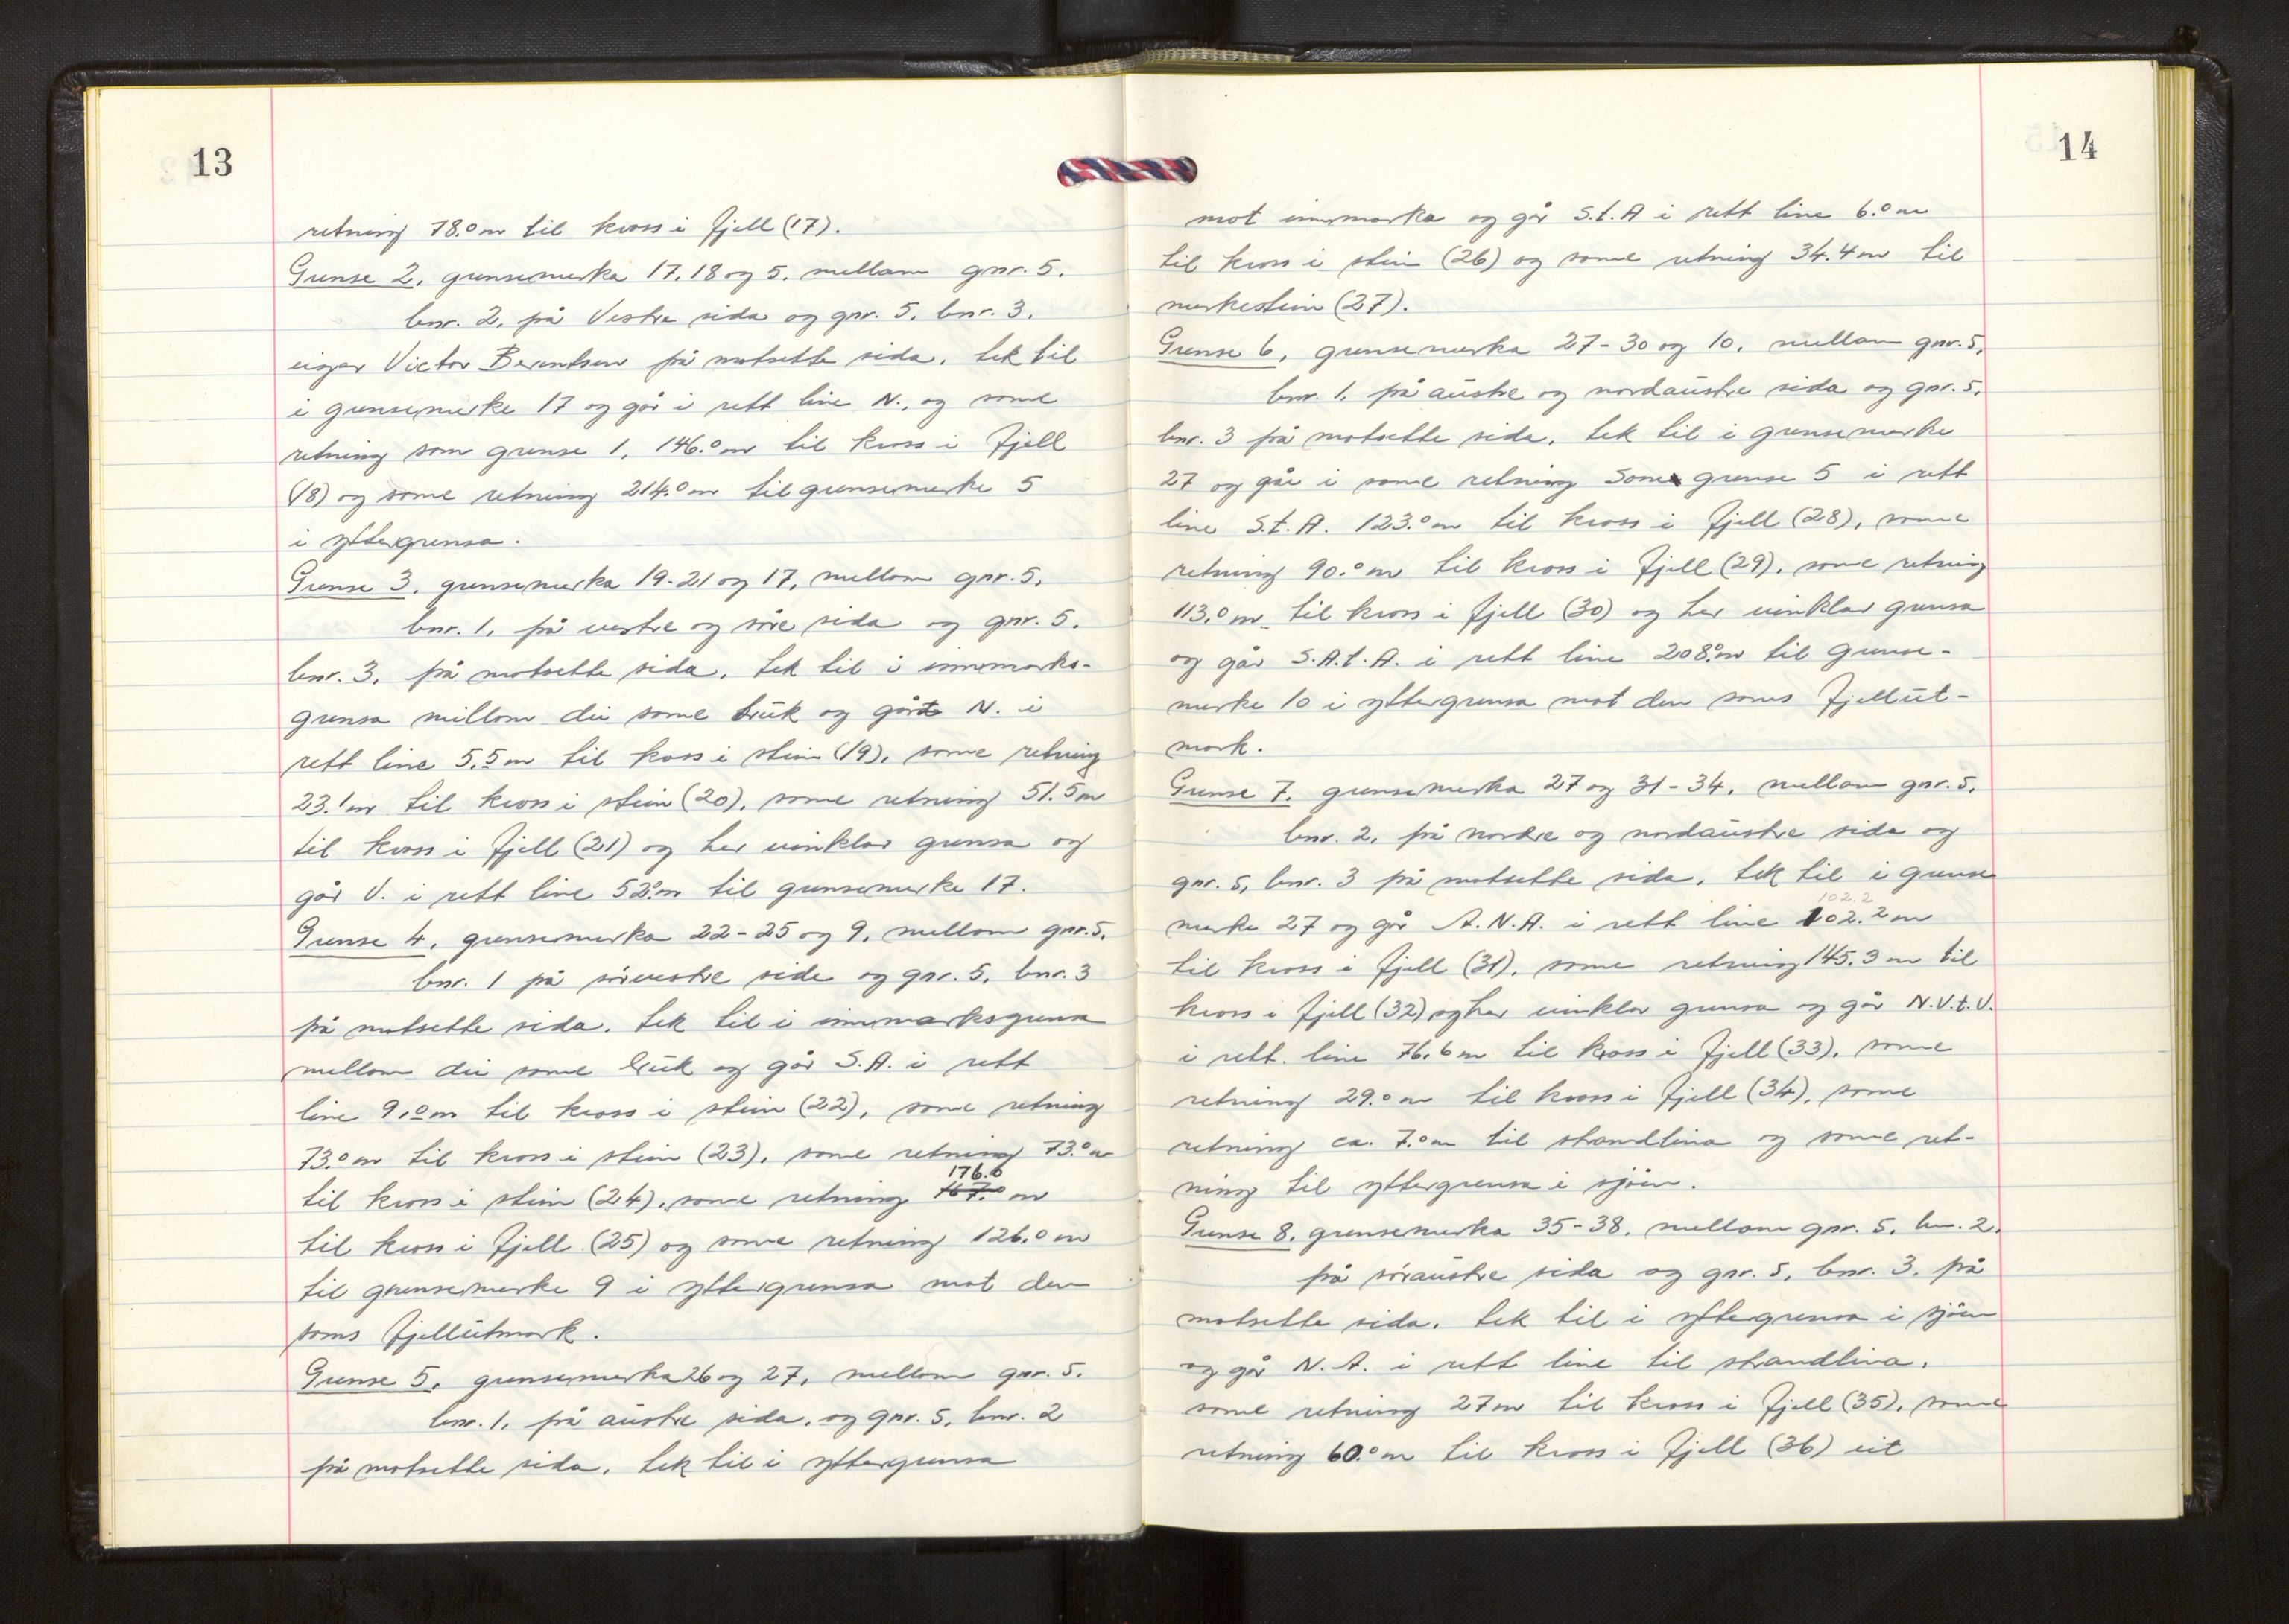 13
retning 78.0 m til kross i fjell (17).
Grense 2, grensemerka 17, 18 og 5, mellom gnr. 5,
bnr. 2, på Vestre sida og gnr. 5, bnr. 3,
eigar Victor Berentsen på motsette sida, tek til
i grensemerke 17 og går i rett line N., og same
retning som grense 1, 146.0 m til kross i fjell
(18) og same retning 214.0 m til grensemerke 5
i yttergrensa.
Grense 3, grensemerka 19-21 og 17, mellom gnr. 5,
bnr. 1, på vestre og søre sida og gnr. 5.
bnr. 3, på motsette sida, tek til i innmarks-
grensa millom dei same bruk og går N. i
rett line 5.5 m til kross i stein (19), same retning
23.1 m til kross i stein (20), same retning 51.5 m
til kross i fjell (21) og her vinklar grensa og
går V. i rett line 52.0 m til grensemerke 17.
Grense 4, grensemerka 22-25 og 9, mellom gnr. 5,
bnr. 1 på sørvestre side og gnr. 5, bnr. 3
på motsette sida, tek til i innmarksgrensa
mellom dei same bruk og går S.A. i rett
line 9.0 m til kross i stein (22), same retning
73.0 m til kross i stein (23), same retning 73.0 m
til kross i stein (24), same retning 167.0 176.0 m
til kross i fjell (25) og same retning 126.0 m
til grensemerke 9 i yttergrensa mot den
sams fjellutmark.
Grense 5, grensemerka 26 og 27, mellom gnr. 5.
bnr. 1, på austre sida, og gnr. 5, bnr. 2
på motsette sida, tek til i yttergrensa
14
mot innmarka og går S.t.A i rett line 6.0 m
til kross i stein (26) og same retning 34.4 m til
merkestein (27).
Grense 6, grensemerka 27-30 og 10, mellom gnr. 5,
bnr. 1, på austre og nordaustre sida og gnr. 5,
bnr. 3 på motsette sida, tek til i grensemerke
27 og går i same retning som grense 5 i rett
line S.t.A. 123.0 m til kross i fjell (28), same
retning 90.0 m til kross i fjell (29), same retning
113.0 m til kross i fjell (30) og her vinklar grensa
og går S.A.t.A. i rett line 208.0 m til grense-
merke 10 i yttergrensa mot den sams fjellut-
mark.
Grense 7, grensemerka 27 og 31-34, mellom gnr. 5,
bnr. 2, på nordre og nordaustre sida og
gnr. 5, bnr. 3 på motsette sida, tek til i grense
102.2
merke 27 og går A.N.A. i rett line 102.2 m
til kross i fjell (31), same retning 145.3 m til
kross i fjell (32) og her vinklar grensa og går N.V.t.V.
i rett line 76.6 m til kross i fjell (33), same
retning 29.0 m til kross i fjell (34), same
retning ca. 7.0 m til strandlina og same ret-
ning til yttergrensa i sjøen.
Grense 8, grensemerka 35-38, mellom gnr. 5, bnr. 2,
på søraustre sida og gnr. 5, bnr. 3, på
motsette sida, tek til i yttergrensa i sjøen
og går N.A. i rett line til strandlina,
same retning 27 m til kross i fjell (35), same
retning 60.0 m til kross i fjell (36) eit